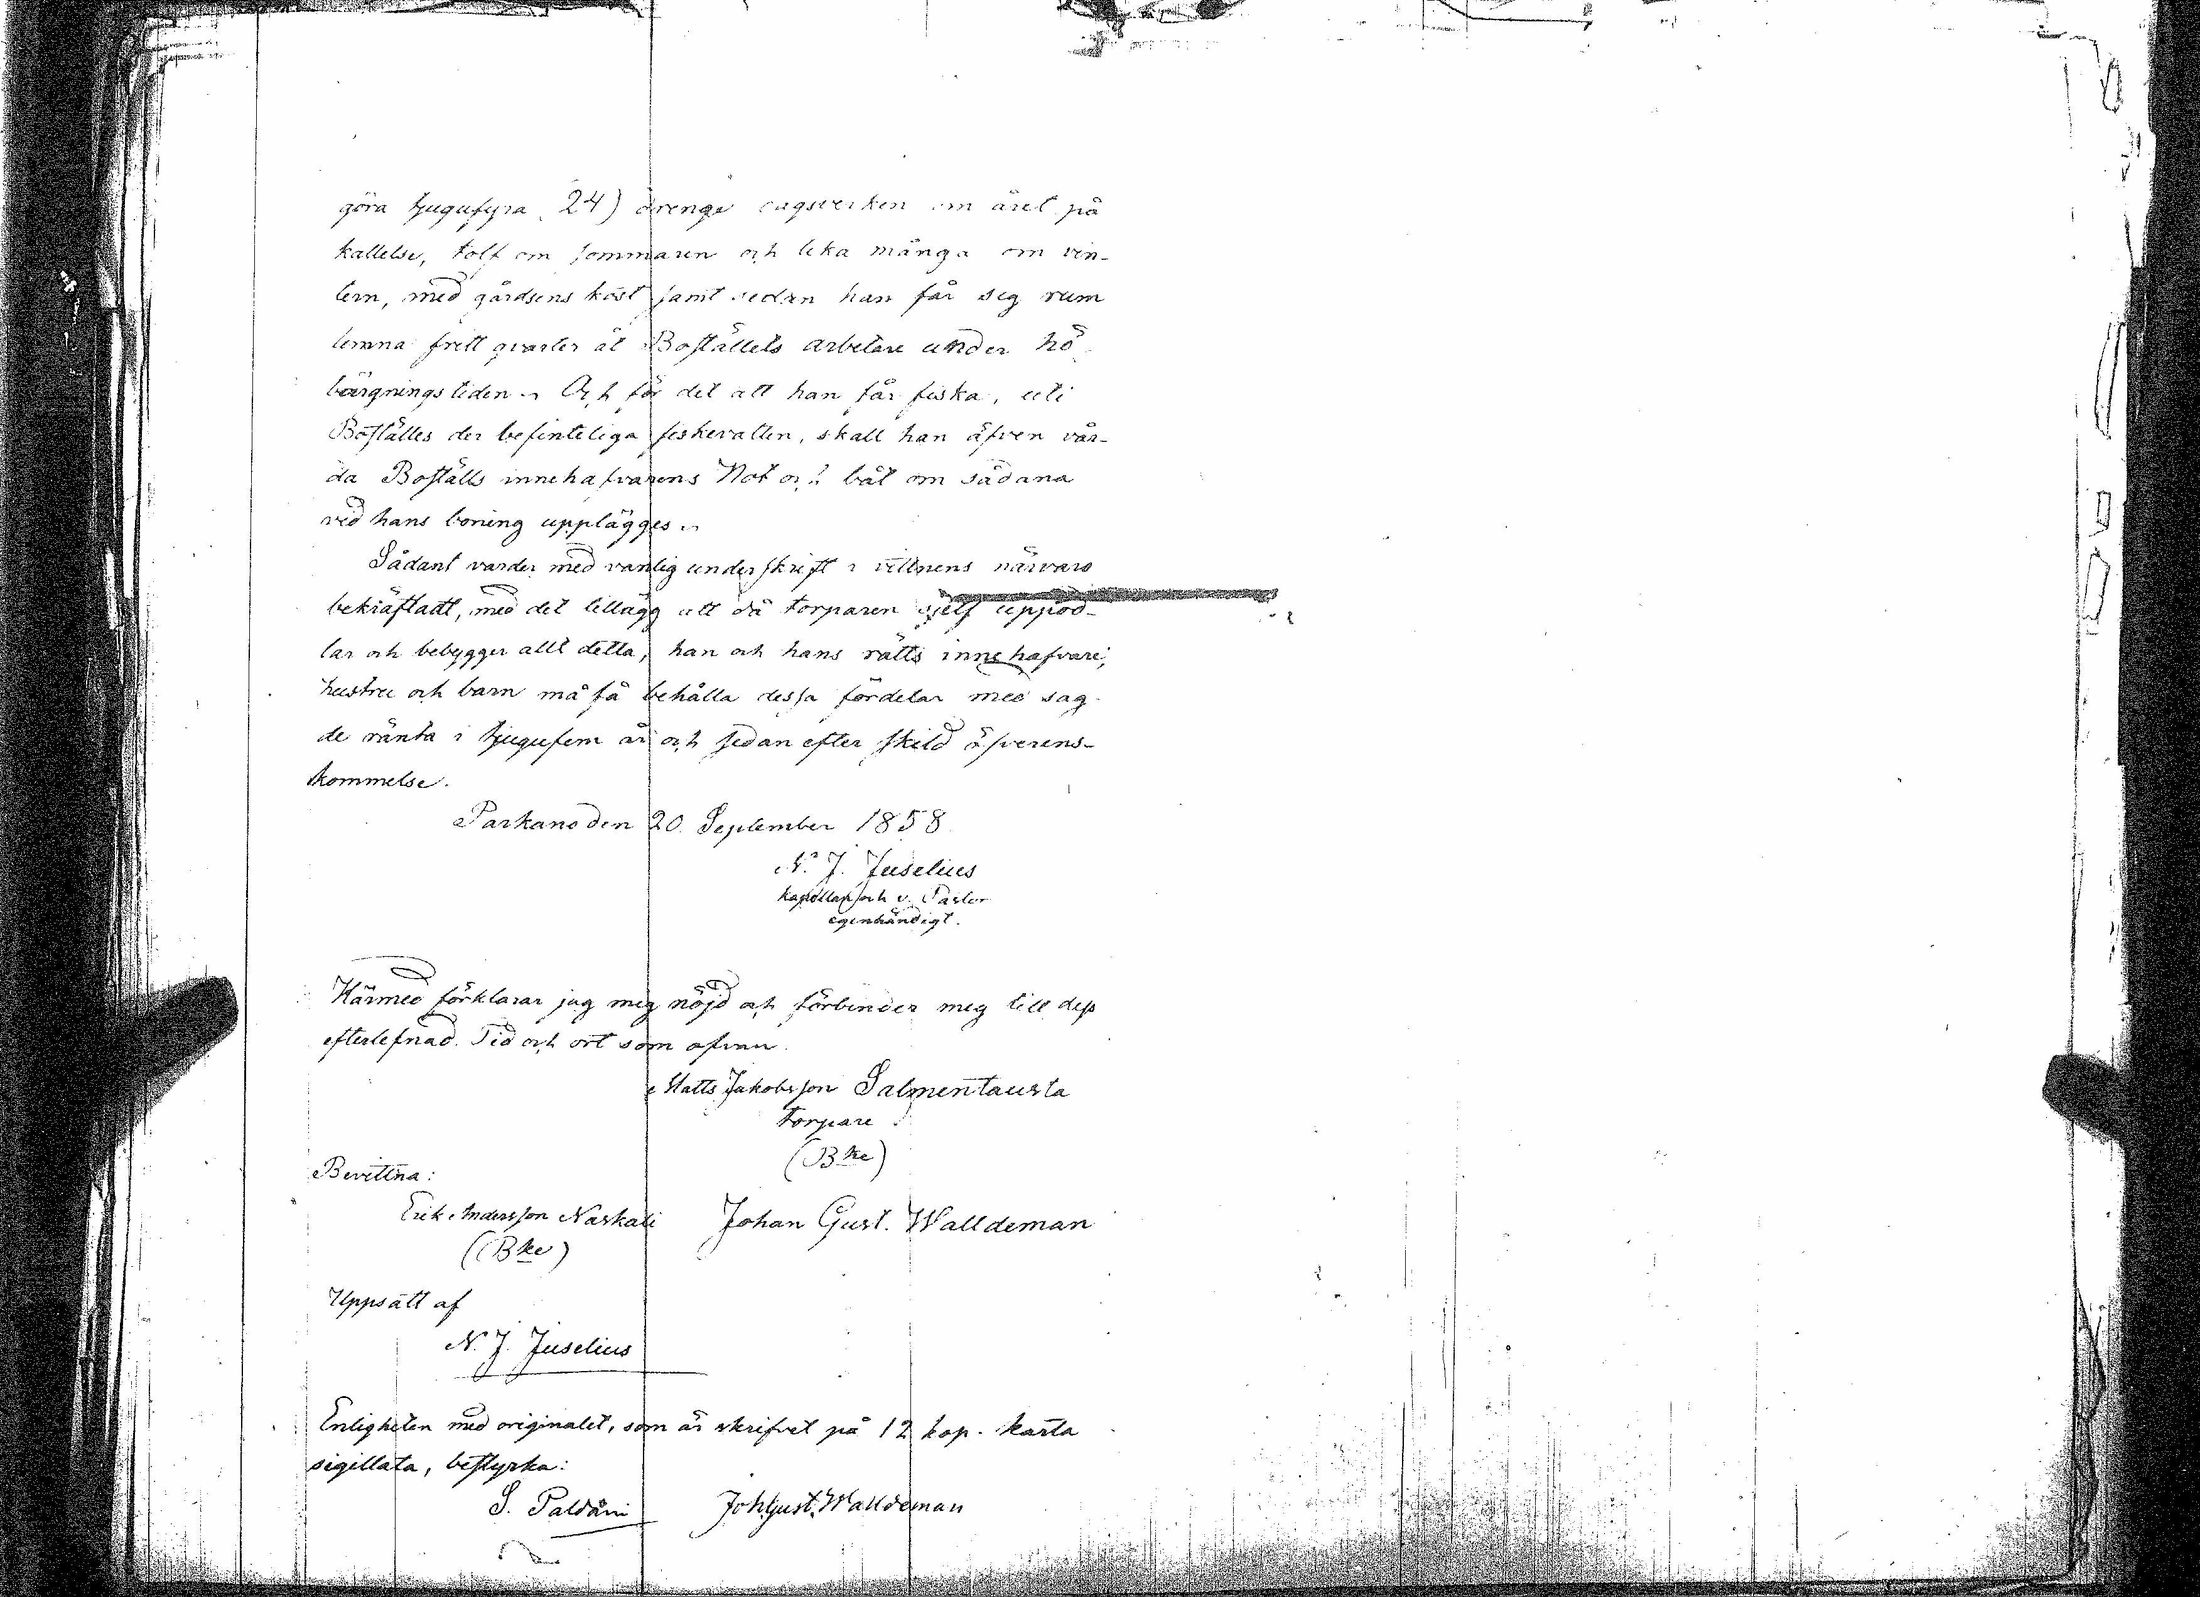 göra tjugufyra 24) drenge dagsverken om året på
kallelse, tolf om sommaren och lika många om vin-
tern, med gårdsens kost jämt sedan han får sig rum
lemna fritt qvarter åt Boställets arbetare under hö
bärgningstiden. Och för det att han får fiska, uti
Boställes der befinteliga fiskevatten, skall han äfven vår-
da Boställs innehafvarens Not och båt om sådana
ved hans boning upplägges.
Sådant varder med vanlig underskrift i vittnens närvaro
bekräftadt, med det tillägg att då torparen sjelf uppod-
lar och bebygger allt detta, han och hans rätts innehafvare,
hustru och barn må få behålla dessa fördelar med sag-
de ränta i tjugufem år och sedan efter skild öfverens-
kommelse.
Parkano den 20. September 1858
N. J. Juselius
kapellan och v. Pastor
egenhändigt.
Härmed förklarar jag mig nöjd och förbinder mig till dess
efterlefnad. Tid och ort som ofvan.
Matts Jakobsson Salmentausta
torpare
(Bke)
Bevittna:
Erik Andersson Naskali Johan Gust. Walldeman
(Bke)
Uppsatt af
N. J. Juselius
Enligheten med originalet, som är skrifvet på 12 kop. karta
sigillata, bestyrka:
S. Paldani Joh. Gust. Walldeman